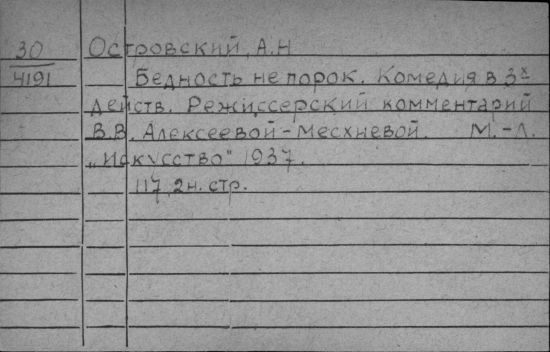 30 Островский, А.Н
4191 Бедность не порок. Комедия в 3х
действ. Режиссерский комментарий
В.В. Алексеевой-Месхневой. М.-Л.
„Искусство" 1937.
117, 2н. стр.